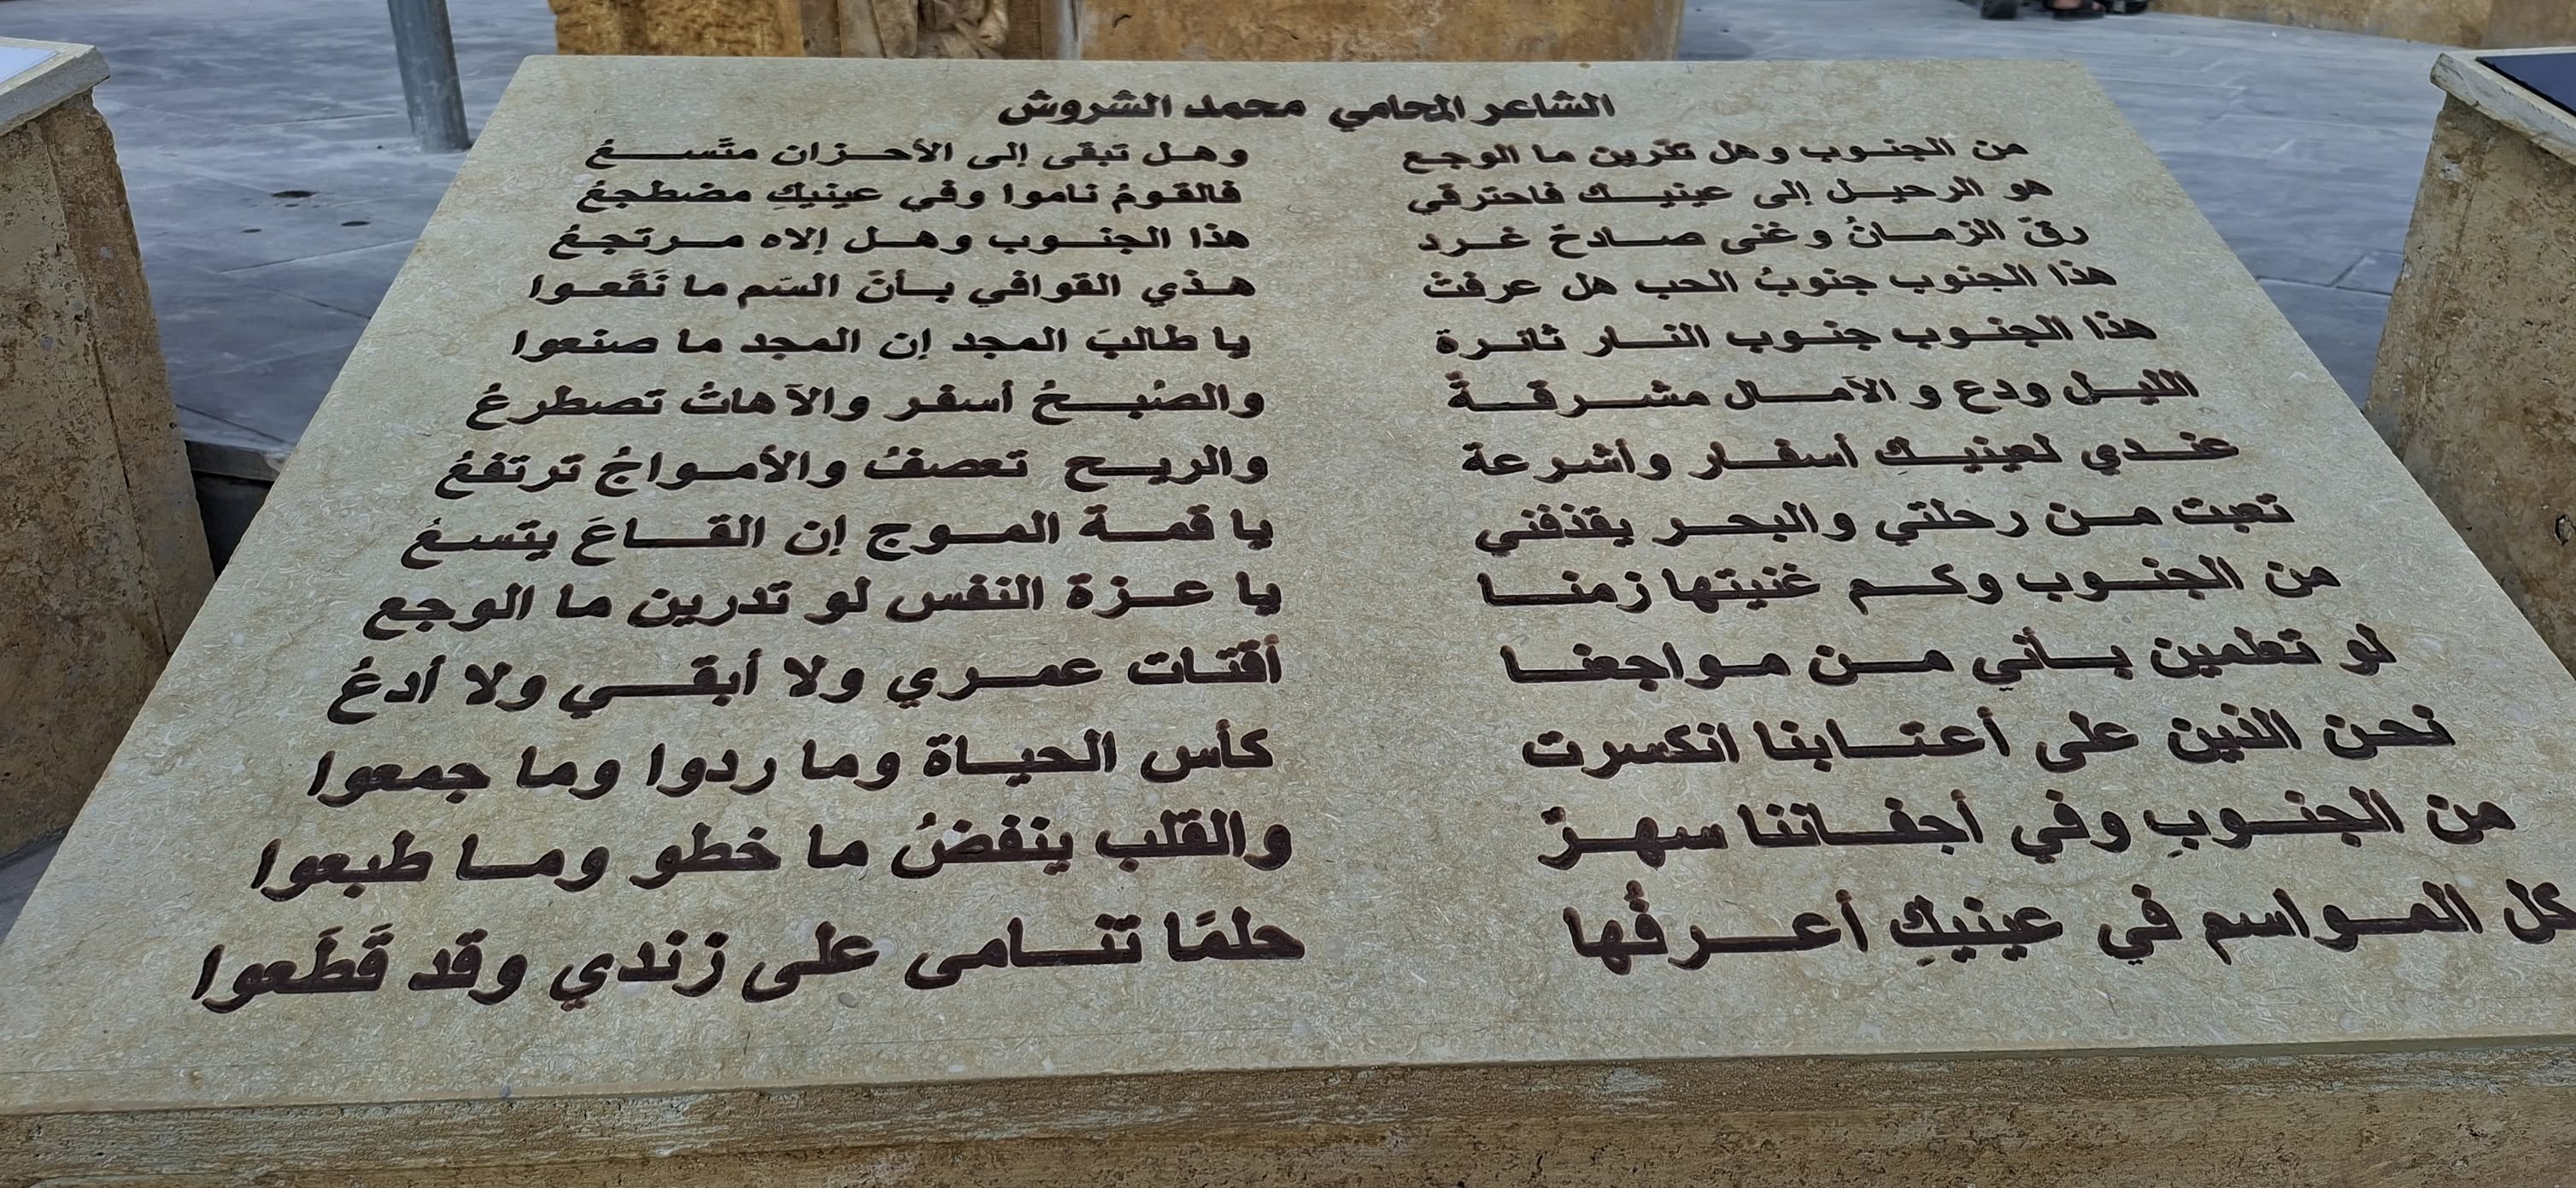 الشاعر المحامي محمد الشروش
من الجنوب وهل تدرين ما الوجع وهل تبقى إلى الأحزان متَّسعُ
هو الرحيل إلى عينيك فاحترقي فالقومُ ناموا وفي عينيكِ مضطجعُ
رقّ الزمانُ وغنى صادحٌ غرد هذا الجنوب وهل إلاه مرتجعُ
هذا الجنوب جنوبُ الحب هل عرفتْ هذي القوافي بأنَ السّم ما نَقَعوا
هذا الجنوب جنوب النار ثائرة يا طالبَ المجد إن المجد ما صنعوا
الليل ودع و الآمال مشرقةٌ والصُبحُ أسفر والآهاتُ تصطرعُ
عندي لعينيكِ أسفار وأشرعة والريح تعصفُ والأمواجُ ترتفعُ
تعبت من رحلتي والبحر يقذفني يا قمة الموج إن القاعَ يتسعُ
من الجنوب وكم غنيتها زمنا يا عزة النفس لو تدرين ما الوجع
لو تعلمين بأني من مواجعنا أقتات عمري ولا أبقي ولا أدعُ
نحن الذين على أعتابنا انكسرت كأس الحياة وما ردوا وما جمعوا
من الجنوبِ وفي أجفاننا سهرٌ والقلب ينفضُ ما خطو وما طبعوا
كل المواسم في عينيكِ أعرفُها حلمًا تنامى على زندي وقد قَطَعوا